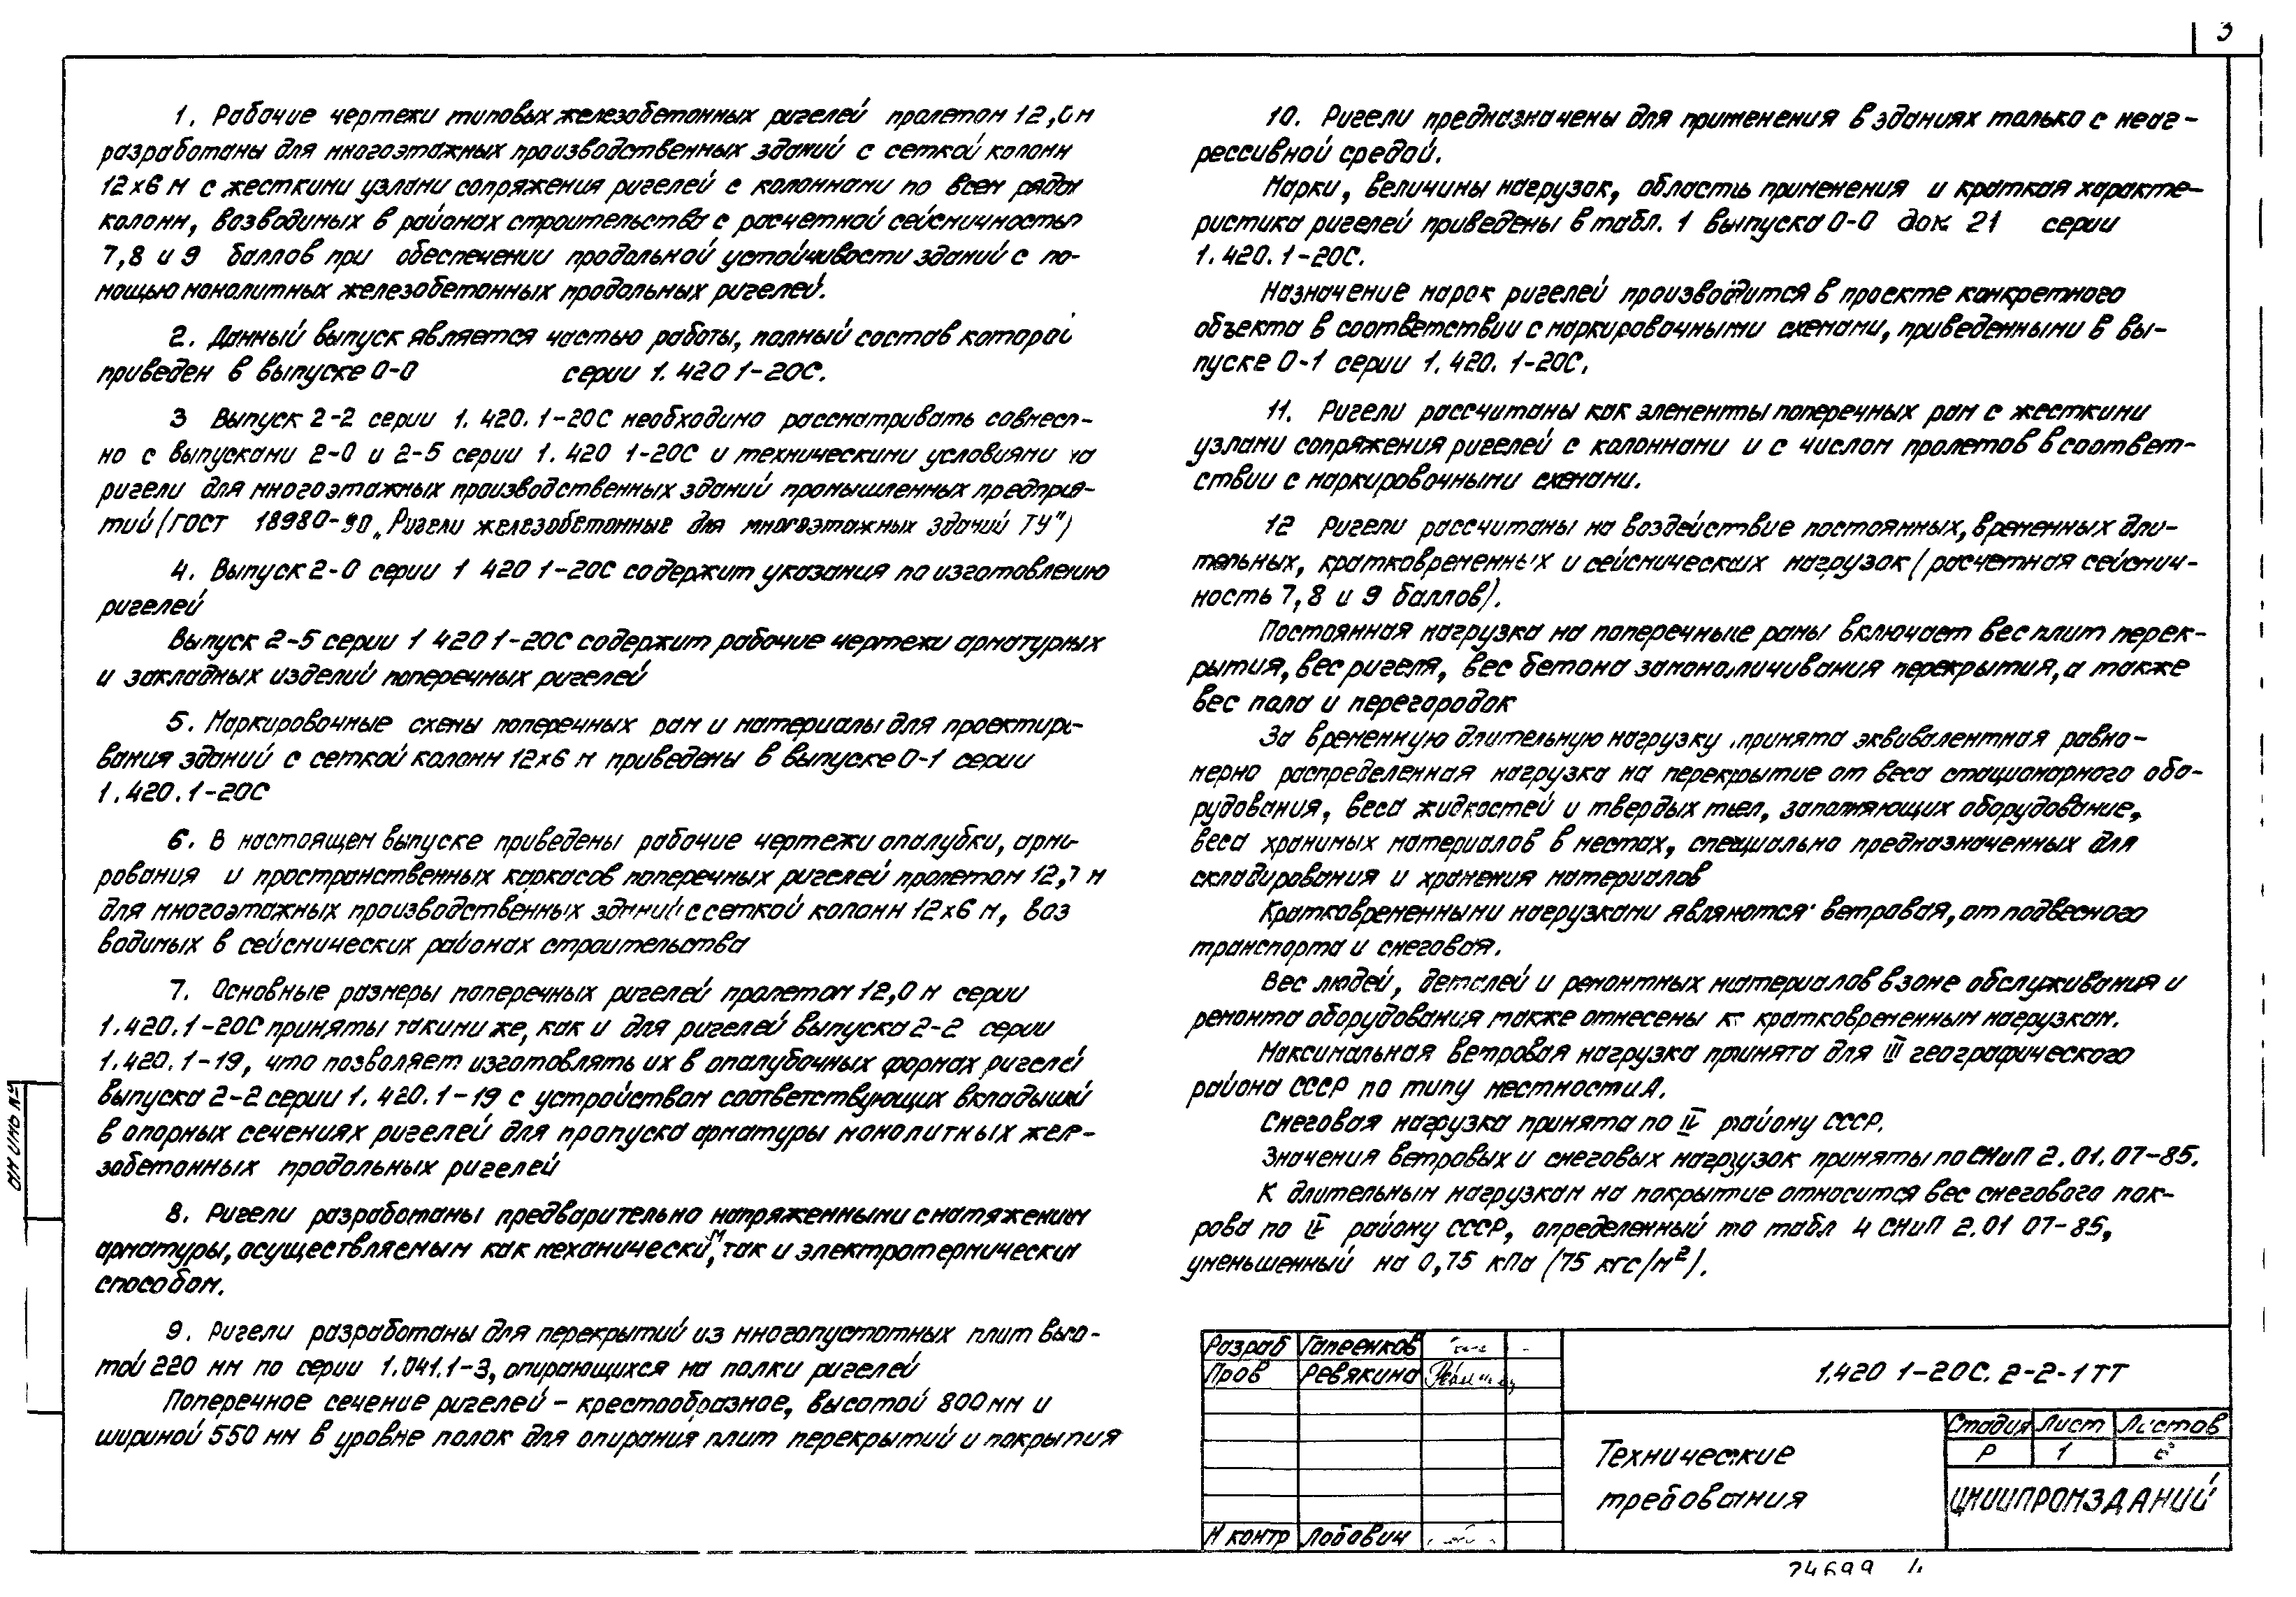 3
1. Рабочие чертежи типовых железобетонных ригелей пролетом 12,0 м
разработаны для многоэтажных производственных зданий с сеткой колонн
12×6 м с жесткими узлами сопряжения ригелей с колоннами по всем рядам
колонн, возводимых в районах строительства с расчетной сейсмичностью
7, 8 и 9 баллов при обеспечении продольной устойчивости зданий с по-
мощью монолитных железобетонных продольных ригелей.
2. Данный выпуск является частью работы, полный состав которой
приведен в выпуске 0-0 серии 1.420 1-20С.
3 Выпуск 2-2 серии 1.420.1-20С необходимо рассматривать совмест-
но с выпусками 2-0 и 2-5 серии 1.420 1-20С и техническими условиями на
ригели для многоэтажных производственных зданий промышленных предприя-
тий (ГОСТ 18980-90 „Ригели железобетонные для многоэтажных зданий ТУ")
4. Выпуск 2-0 серии 1 420 1-20С содержит указания по изготовлению
ригелей
Выпуск 2-5 серии 1 420 1-20С содержит рабочие чертежи арматурных
и закладных изделий поперечных ригелей
5. Маркировочные схемы поперечных рам и материалы для проектиро-
вания зданий с сеткой колонн 12×6 м приведены в выпуске 0-1 серии
1.420.1-20С
6. В настоящем выпуске приведены рабочие чертежи опалубки, арми-
рования и пространственных каркасов поперечных ригелей пролетом 12,0 м
для многоэтажных производственных зданий с сеткой колонн 12×6 м, воз
водимых в сейсмических районах строительства
7. Основные размеры поперечных ригелей пролетом 12,0 м серии
1.420.1-20С приняты такими же, как и для ригелей выпуска 2-2 серии
1.420.1-19, что позволяет изготовлять их в опалубочных формах ригелей
выпуска 2-2 серии 1.420.1-19 с устройством соответствующих вкладышей
в опорных сечениях ригелей для пропуска арматуры монолитных желе-
зобетонных продольных ригелей
8. Ригели разработаны предварительно напряженными с натяжением
арматуры, осуществляемым как механическим, так и электротермическим
способом.
9. Ригели разработаны для перекрытий из многопустотных плит высо-
той 220 мм по серии 1.041.1-3, опирающихся на полки ригелей
Поперечное сечение ригелей – крестообразное, высотой 800 мм и
шириной 550 мм в уровне полок для опирания плит перекрытий и покрытия
10. Ригели предназначены для применения в зданиях только с неаг-
рессивной средой.
Марки, величины нагрузок, область применения и краткая характе-
ристика ригелей приведены в табл. 1 выпуска 0-0 док 21 серии
1.420.1-20С.
Назначение марок ригелей производится в проекте конкретного
объекта в соответствии с маркировочными схемами, приведенными в вы-
пуске 0-1 серии 1.420.1-20С.
11. Ригели рассчитаны как элементы поперечных рам с жесткими
узлами сопряжения ригелей с колоннами и с числом пролетов в соответ-
ствии с маркировочными схемами.
12 Ригели рассчитаны на воздействие постоянных, временных дли-
тельных, кратковременных и сейсмических нагрузок (расчетная сейсмич-
ность 7, 8 и 9 баллов).
Постоянная нагрузка на поперечные рамы включает вес плит перек-
рытия, вес ригеля, вес бетона замоноличивания перекрытия, а также
вес пола и перегородок
За временную длительную нагрузку принята эквивалентная равно-
мерно распределенная нагрузка на перекрытие от веса стационарного обо-
рудования, веса жидкостей и твердых тел, заполняющих оборудование,
веса хранимых материалов в местах, специально предназначенных для
складирования и хранения материалов
Кратковременными нагрузками являются: ветровая, от подвесного
транспорта и снеговая.
Вес людей, деталей и ремонтных материалов в зоне обслуживания и
ремонта оборудования также отнесены к кратковременным нагрузкам.
Максимальная ветровая нагрузка принята для III географического
района СССР по типу местности А.
Снеговая нагрузка принята по IV району СССР.
Значения ветровых и снеговых нагрузок приняты по СНиП 2.01.07-85.
К длительным нагрузкам на покрытие относится вес снегового пок-
рова по IV району СССР, определенный по табл 4 СНиП 2.01 07-85,
уменьшенный на 0,75 кПа (75 кгс/м²).
Разраб Гапеенков
Пров Ревякина
Н контр Лобович
1.420 1-20С. 2-2-1ТТ
Технические
требования
Стадия Лист Листов
Р 1
ЦНИИПРОМЗДАНИЙ
24699